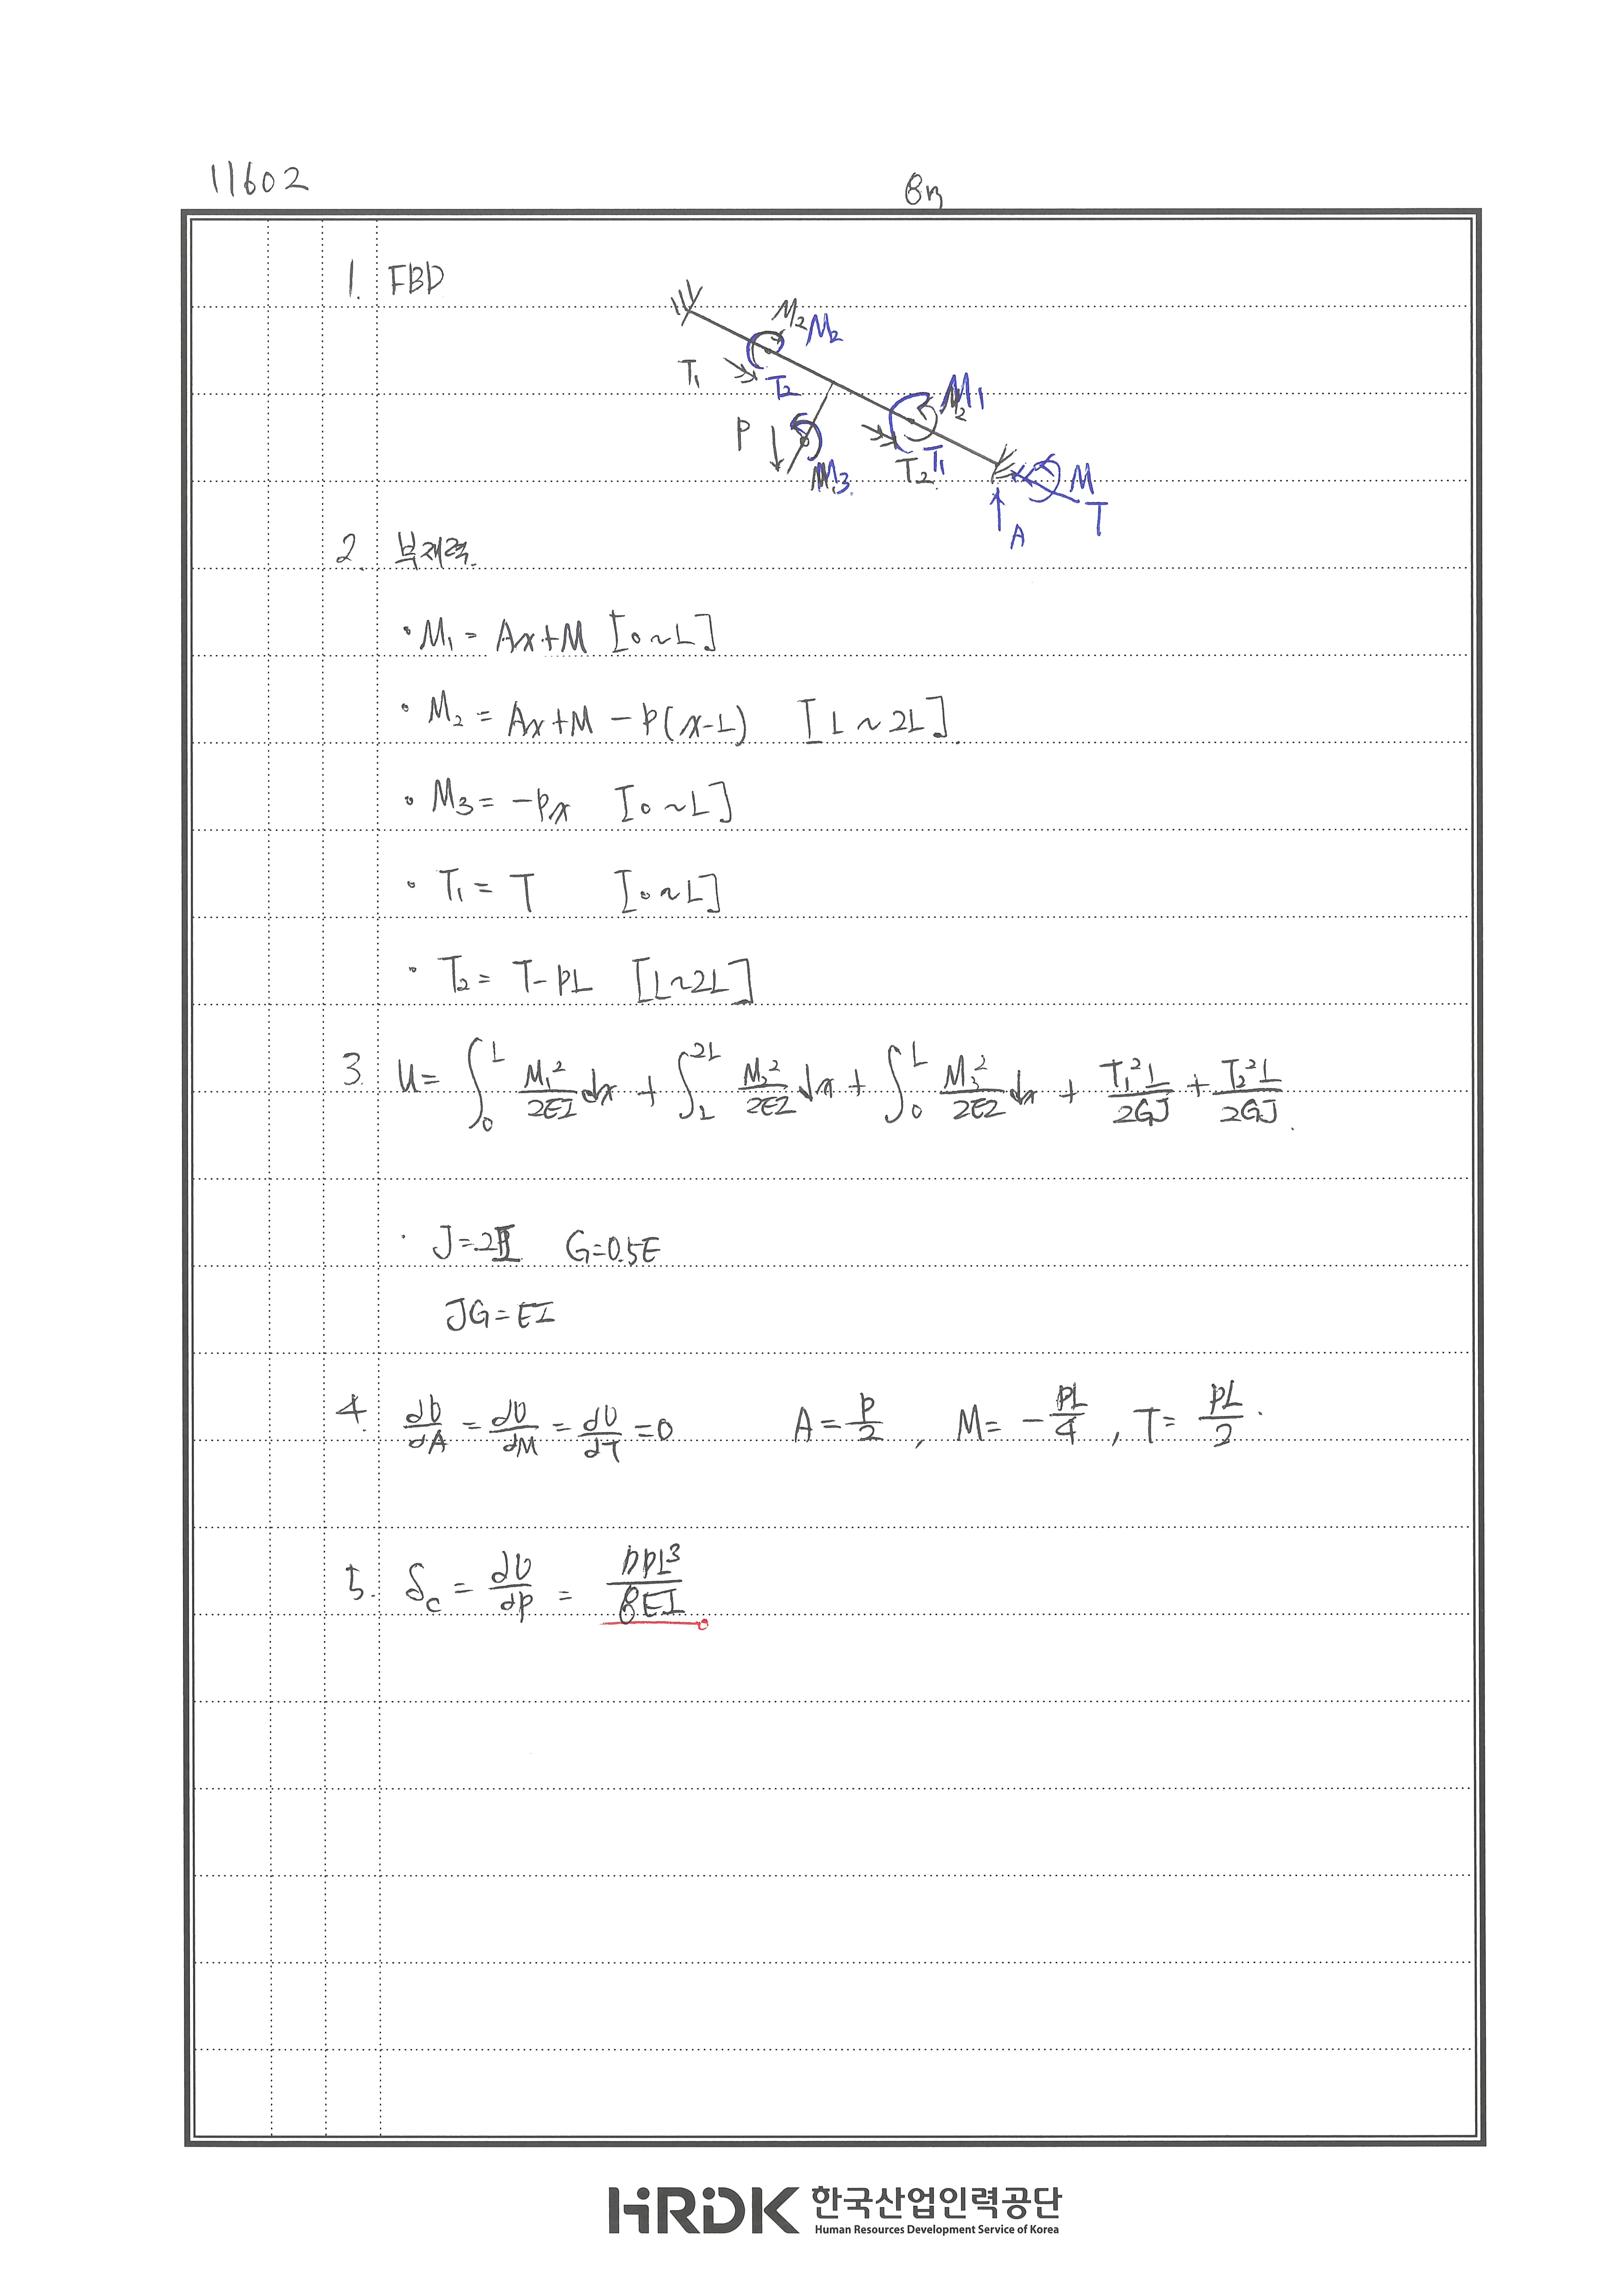 11602
8m
1. FBD
M₂ M₂
T₁ T₂ M₁
P M₃ T₂ T₁ M
A T
2. 부재력.
• M₁ = Ax+M [0~L]
• M₂ = Ax+M - P(x-L) [L~2L].
• M₃ = -Px [0~L]
• T₁ = T [0~L]
• T₂ = T-PL [L~2L]
3. U= ∫₀ᴸ M₁²/2EI dx + ∫_L^2L M₂²/2EI dx + ∫₀ᴸ M₃²/2EI dx + T₁²L/2GJ + T₂²L/2GJ.
• J=2I G=0.5E
JG=EI
4. ∂U/∂A = ∂U/∂M = ∂U/∂T = 0 A=P/2, M= -PL/4, T= PL/2.
5. δc = ∂U/∂P = PL³/8EI
HRDK 한국산업인력공단
Human Resources Development Service of Korea